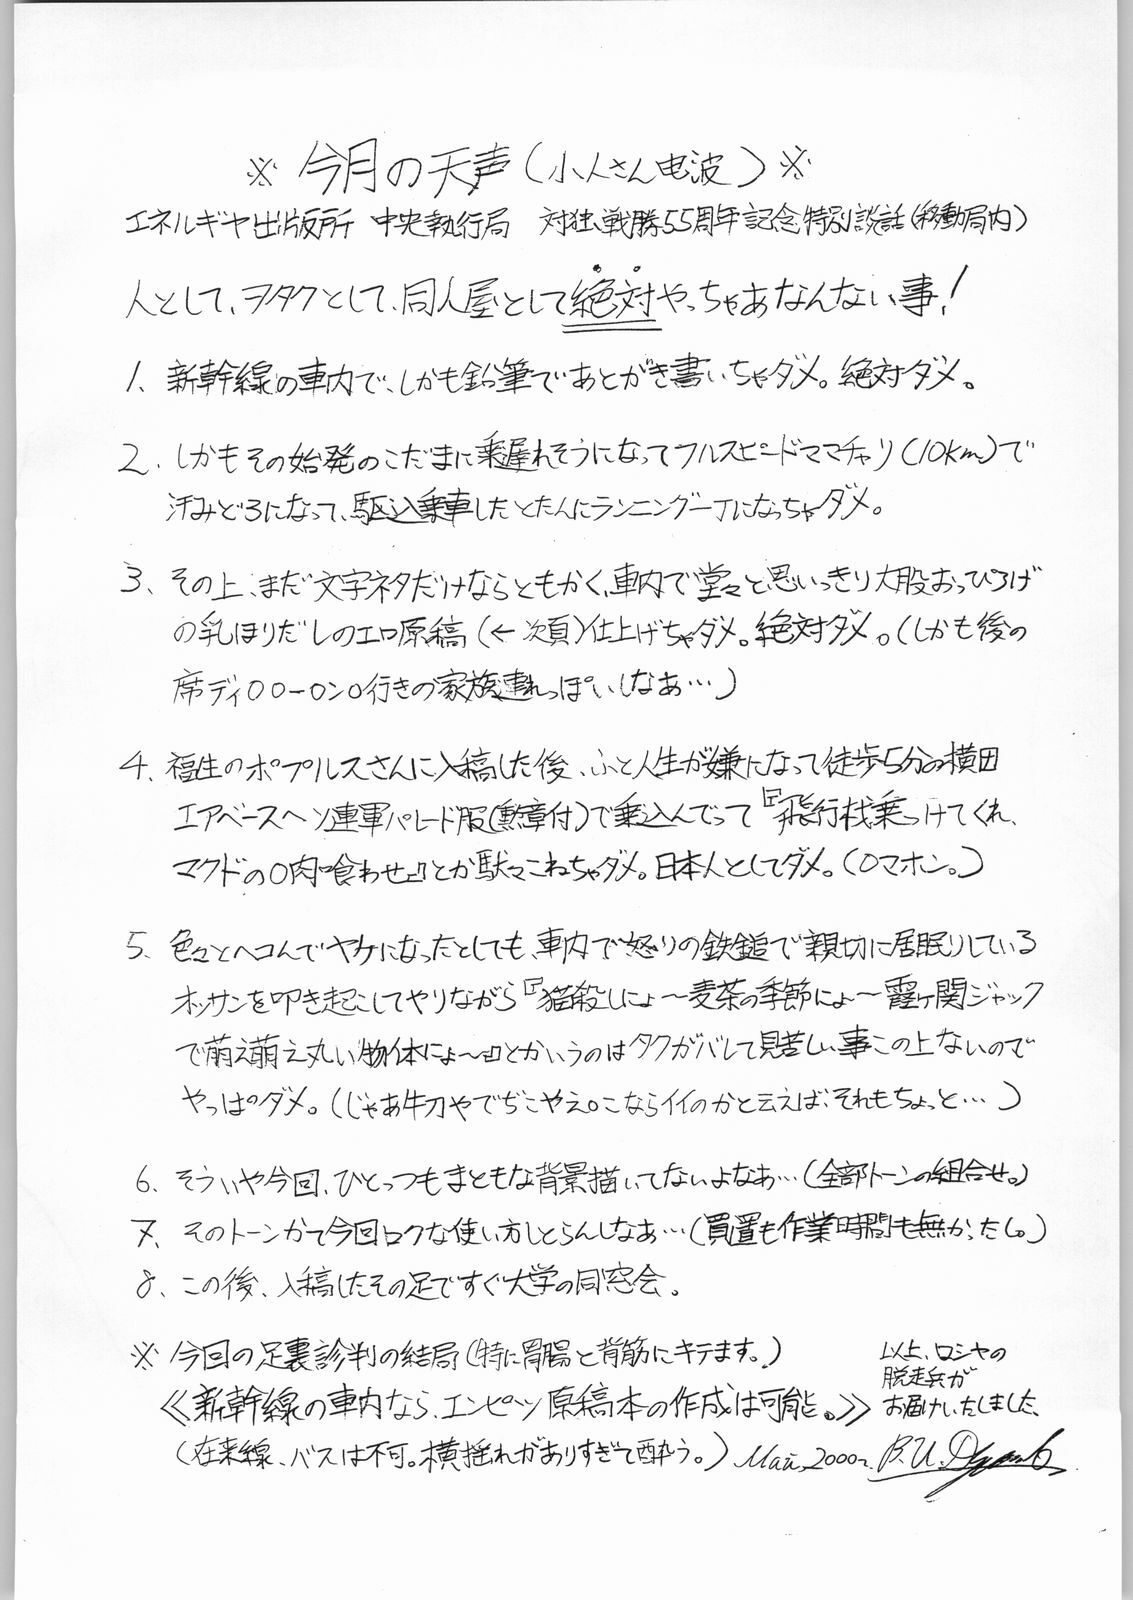 ※ 今月の天声(小人さん电波) ※
エネルギヤ出版所 中央執行局 対独戦勝55周年記念特別談話(移動局内)
人として、ヲタクとして、同人屋として絶対やっちゃあなんない事!
1、新幹線の車内で、しかも鉛筆であとがき書いちゃダメ。絶対ダメ。
2、しかもその始発のこだまに乗遅れそうになってフルスピードママチャリ(10km)で
汗みどろになって、駆込乗車したとたんにランニング一丁になっちゃダメ。
3、その上、まだ文字ネタだけならともかく、車内で堂々と思いっきり大股おっぴろげ
の乳ほりだしのエロ原稿(←次頁)仕上げちゃダメ。絶対ダメ。(しかも後の
席ディ○○ー○ン○行きの家族連れっぽいしなあ…)
4、福生のポプルスさんに入稿した後、ふと人生が嫌になって徒歩5分の横田
エアベースへソ連軍パレード服(勲章付)で乗込んでって『飛行机乗っけてくれ、
マクドの○肉喰わせ』とか駄々こねちゃダメ。日本人としてダメ。(○マホン。)
5、色々とヘコんでヤケになったとしても、車内で怒りの鉄鎚で親切に居眠りしている
オッサンを叩き起こしてやりながら『猫殺しにょ～麦茶の季節にょ～霞ヶ関ジャック
で萌え萌え丸い物体にょ～』とかいうのはタクがバレて見苦しい事この上ないので
やっぱダメ。(じゃあ牛刀やでぢこやえ○こならイイのかと云えば、それもちょっと…)
6、そういや今回、ひとっつもまともな背景描いてないよなあ…(全部トーンの組合せ。)
7、そのトーンかて今回ロクな使い方しとらんしなあ…(買置も作業時間も無かったし。)
8、この後、入稿したその足ですぐ大学の同窓会。
※ 今回の足裏診判の結局(特に胃腸と背筋にキテます。)
≪新幹線の車内なら、エンピツ原稿本の作成は可能。≫
(在来線、バスは不可。横揺れがありすぎて酔う。)
以上、ロシヤの
脱走兵が
お届けいたしました。
Май, 2000г.